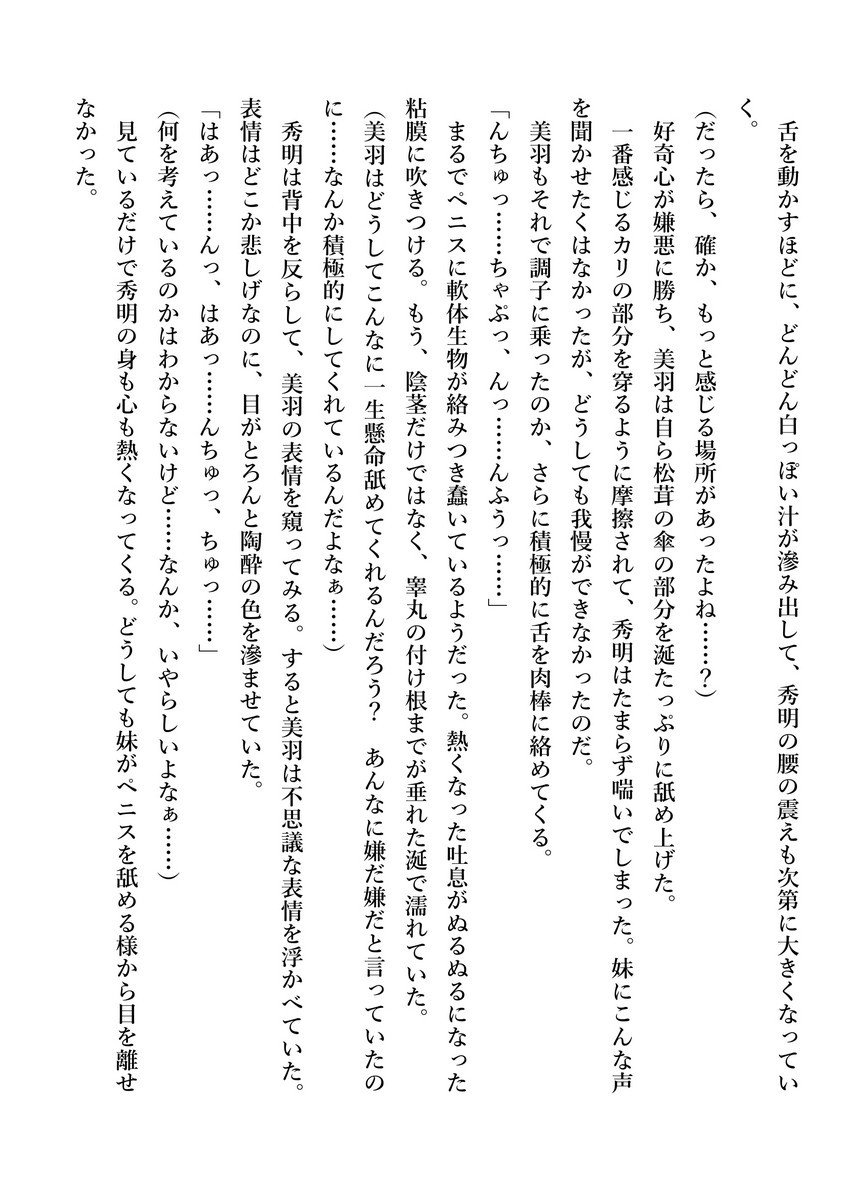 舌を動かすほどに、どんどん白っぽい汁が滲み出して、秀明の腰の震えも次第に大きくなってい
く。
(だったら、確か、もっと感じる場所があったよね……？)
好奇心が嫌悪に勝ち、美羽は自ら松茸の傘の部分を涎たっぷりに舐め上げた。
一番感じるカリの部分を穿るように摩擦されて、秀明はたまらず喘いでしまった。妹にこんな声
を聞かせたくはなかったが、どうしても我慢ができなかったのだ。
美羽もそれで調子に乗ったのか、さらに積極的に舌を肉棒に絡めてくる。
「んちゅっ……ちゃぷっ、んっ……んふうっ……」
まるでペニスに軟体生物が絡みつき蠢いているようだった。熱くなった吐息がぬるぬるになった
粘膜に吹きつける。もう、陰茎だけではなく、睾丸の付け根までが垂れた涎で濡れていた。
(美羽はどうしてこんなに一生懸命舐めてくれるんだろう？　あんなに嫌だ嫌だと言っていたの
に……なんか積極的にしてくれているんだよなぁ……)
秀明は背中を反らして、美羽の表情を窺ってみる。すると美羽は不思議な表情を浮かべていた。
表情はどこか悲しげなのに、目がとろんと陶酔の色を滲ませていた。
「はあっ……んっ、はあっ……んちゅっ、ちゅっ……」
(何を考えているのかはわからないけど……なんか、いやらしいよなぁ……)
見ているだけで秀明の身も心も熱くなってくる。どうしても妹がペニスを舐める様から目を離せ
なかった。